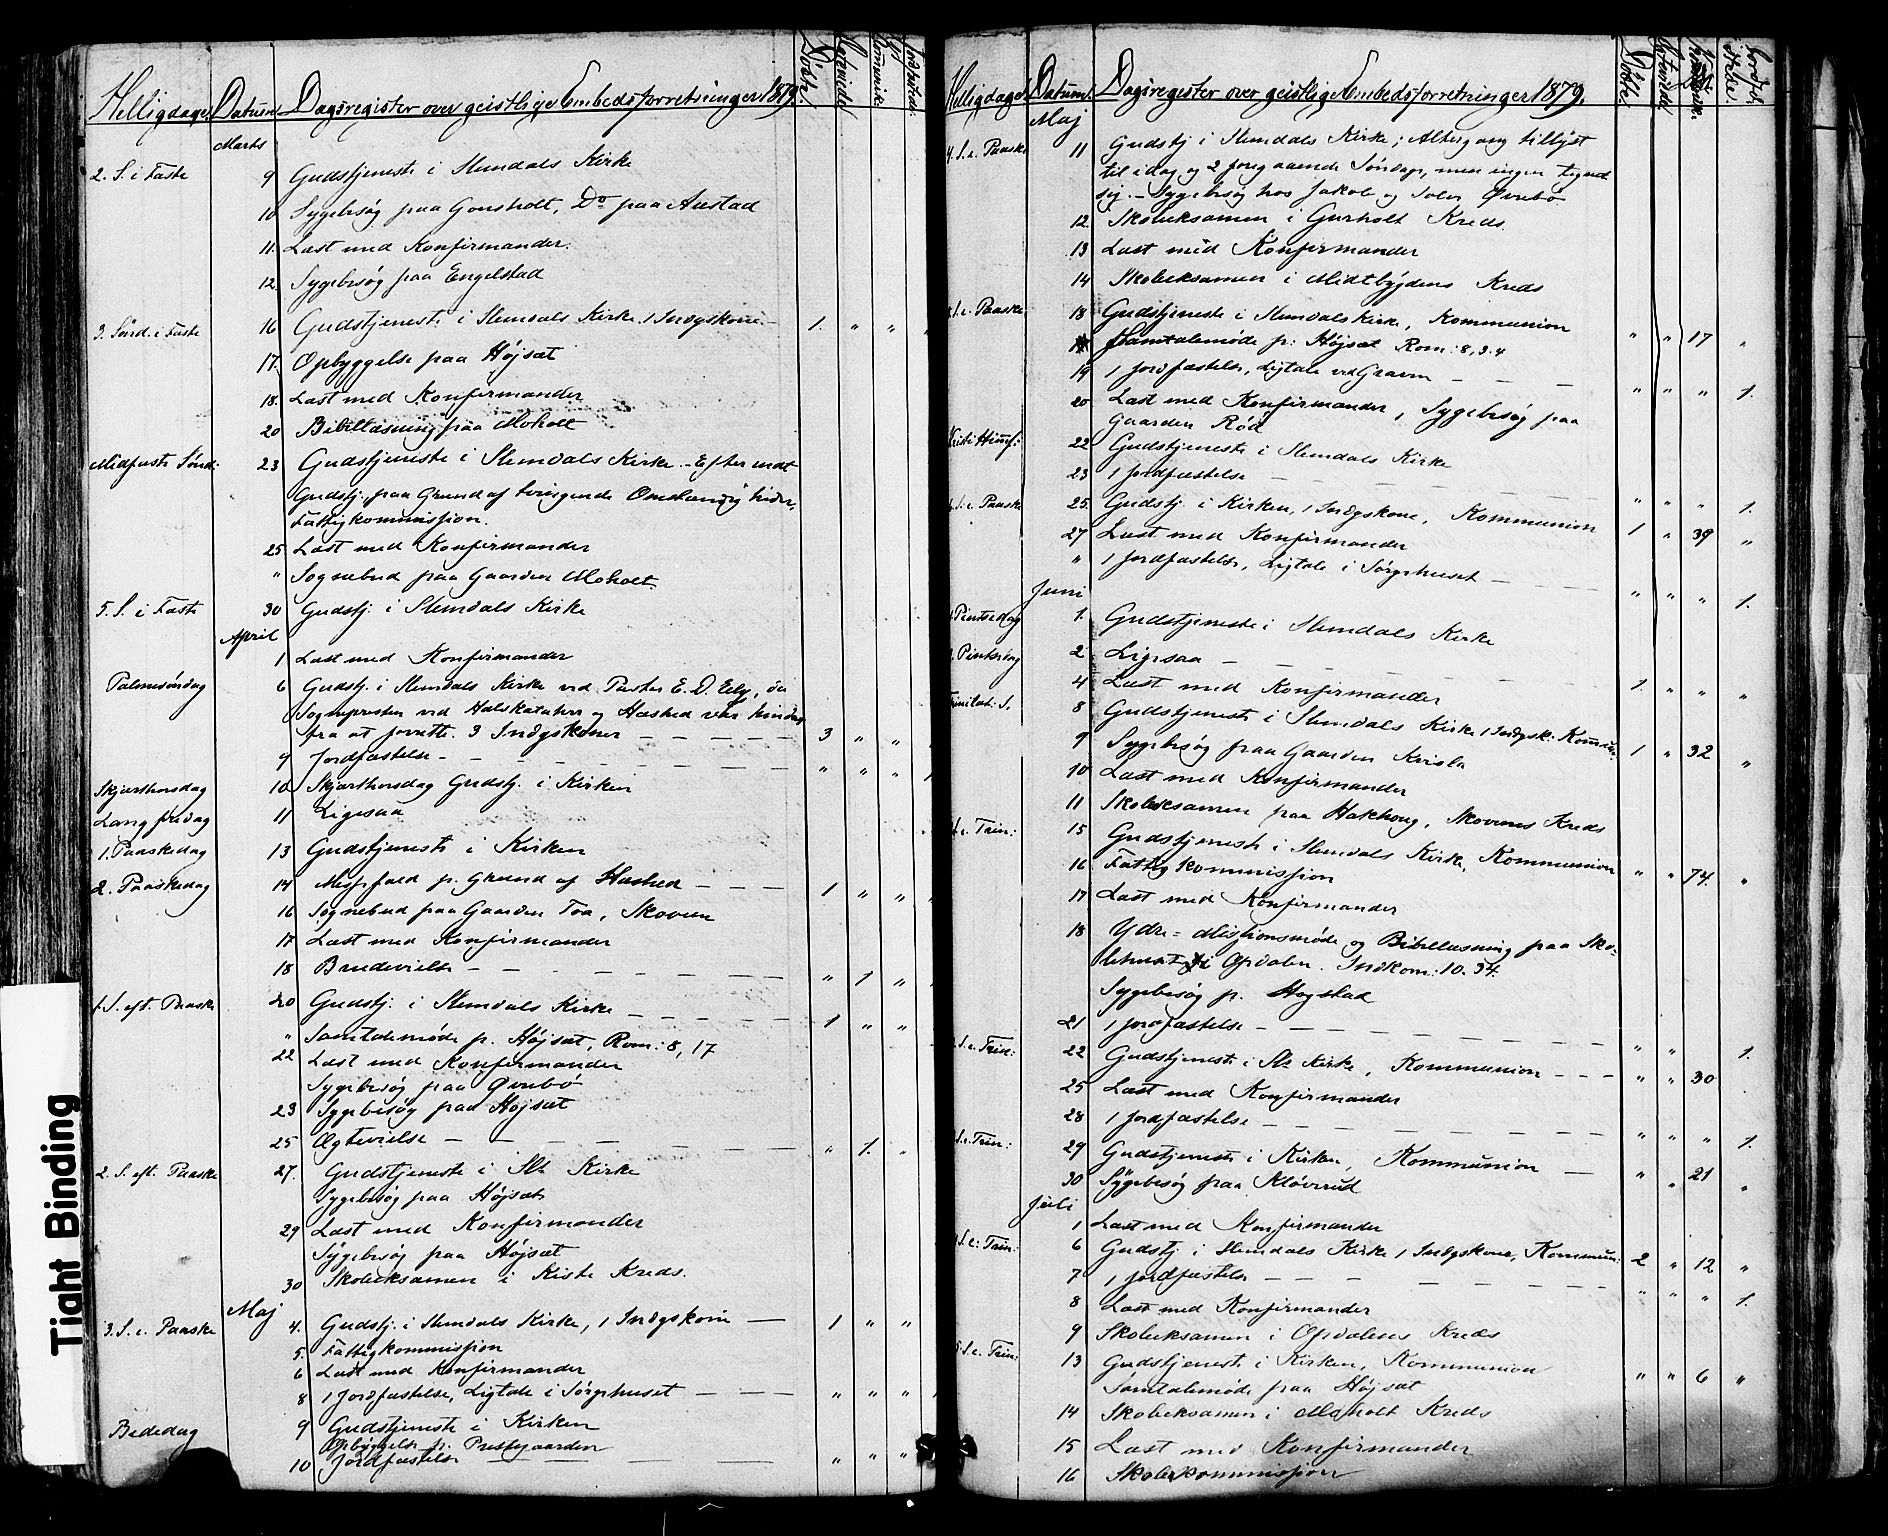 Helligdage. Datum Dagsregister over geistlige Embedsforretninger 1879. Döbte. Communik.
Marts
2. S. i Faste 9 Gudstjeneste i Slemdals Kirke
10 Sygebesøg paa Gonsholt, Do paa Austad
11. Læst med Konfirmander.
12. Sygebesøg paa Engelstad
3. Sönd. i Faste 16 Gudstjeneste i Slemdals Kirke. 1 Indgskone - 1. " " "
17. Opbyggelse paa Højsæt
18. Læst med Konfirmander
20 Bibellæsning paa Moholt
Midfaste Sönd: 23 Gudstjeneste i Slemdals Kirke. - Efter endt
Gudstj. paa Grund af tvingende
Fattigkommission.
25 Læst med Konfirmander
" Sognebud paa Gaarden Moholt.
5. S. i Faste 30 Gudstj: i Slemdals Kirke
April
1 Læst med Konfirmander
Palmesöndag 6 Gudstj. i Slemdals Kirke ved Pastor E. D. da
Sognepresten ved Halskatahr og Hæshed var hindret
fra at forrette. 3 Indgskoner - - - - - 3 " "
9 Jordfæstelse - - - - - - - " " "
Skjærthorsdag 10 Skjærthorsdag Gudstj. i Kirken
Langfredag 11 Ligesaa
1. Paaskedag 13 Gudstjeneste i Kirken
2. Paaskedag 14 Messefald p. Grund af Hæshed - - - 1 " "
16 Sognebud paa Gaarden Toa, Skoven
17 Læst med Konfirmander
18 Brudevielse - - - - - - " 1 "
1 S. eft. Paaske 20 Gudstj: i Slemdals Kirke - - - - - 1 " "
" Samtalemøde p. Højsæt, Rom: 8, 17
22 Læst med Konfirmander
Sygebesøg paa Øvrebö
23 Sygebesøg paa Højsæt
25 Ægtevielse - - - - - - " 1. "
2. S. eft. Paaske 27. Gudstjeneste i Sl: Kirke
Sygebesøg paa Højsæt
29 Læst med Konfirmander
Sygebesøg paa Højsæt
30 Skoleeksamen i Kiste Kreds.
Maj
3. S. e. Paaske 4. Gudstj: i Slemdals Kirke, 1 Indgskone - 1 " "
5. Fattigkommission
6 Læst med Konfirmander
8 1 Jordfæstelse, Ligtale i Sörgehuset - - - " " "
Bededag 9 Gudstjeneste i Kirken
Opbyggelse p. Prestegaarden
10 Jordfæstelse - - - " " "
Helligdage. Datum. Dagsregister over geistlige Embedsforretninger 1879. Döbte.
Maj
4. S. e. Paaske 11 Gudstj i Slemdals Kirke; Altergang tillyst
til idag og 2 foregaaende Söndage, men ingen tegnet
sig. - Sygebesøg hos Jakob og Øvrebö
12. Skoleeksamen i Gurholt Kreds.
13 Læst med Konfirmander
14 Skoleeksamen i Midtbygdens Kreds
S. e. Paaske 18 Gudstjeneste i Slemdals Kirke, Kommunion " " 17 "
Samtalemøde p: Højsæt Rom: 8, 3.4
19 1 Jordfæstelse, Ligtale ved Graven - - - " " " 1.
20 Læst med Konfirmander, Sygebesøg paa
Gaarden Röd
Kristi Himf: 22 Gudstjeneste i Slemdals Kirke
23 1 Jordfæstelse - - - - - " " " 1.
S. e. Paaske 25. Gudstj. i Kirken, 1 Indgskone, Kommunion 1 " 39 "
27 Læst med Konfirmander
" 1 Jordfæstelse, Ligtale i Sörgehuset - - - " " " 1.
Juni
Pintsedag 1. Gudstjeneste i Slemdals Kirke
Pintsedag 2 Ligesaa - - - - - 1. " " "
4 Læst med Konfirmander
Trinitat: S. 8 Gudstjeneste i Slemdals Kirke 1 Indgsk: Kommun: 1 " 32 "
9 Sygebesøg paa Gaarden Kvisla
10 Læst med Konfirmander
11 Skoleeksamen paa Hakhoug, Skovens Kreds
S. e. Trin: 15 Gudstjeneste i Slemdals Kirke, Kommunion " " 74. "
16 Fattigkommission
17 Læst med Konfirmander
18 Ydre = Missionsmøde og Bibellæsning paa Sko-
lehuset i Opdalen. Indkom: 10. 34.
Sygebesøg p. Hogstad
21 1 Jordfæstelse - - - - - " " 1.
S. e. Trin: 22 Gudstjeneste i Sl: Kirke, Kommunion - - - " " 30
25 Læst med Konfirmander
28 1 Jordfæstelse - - - - - " " " 1.
S. e. Trin: 29 Gudstjeneste i Kirken, Kommunion - " " 21 "
30 Sygebesøg paa Klöverud
Juli
1 Læst med Konfirmander
S. e. Trin: 6 Gudstj i Slemdals Kirke 1 Indgskone, Kommun: 2 " 12 "
7 1 Jordfæstelse - - - - - " " " 1.
8 Læst med Konfirmander
9 Skoleeksamen i Opdalens Kreds
S. e. Trin: 13 Gudstjeneste i Kirken, Kommunion " " 6 "
Samtalemøde paa Højsæt
14 Skoleeksamen i Moholt Kreds
15 Læst med Konfirmander
16 Skolekommission
Tight Binding